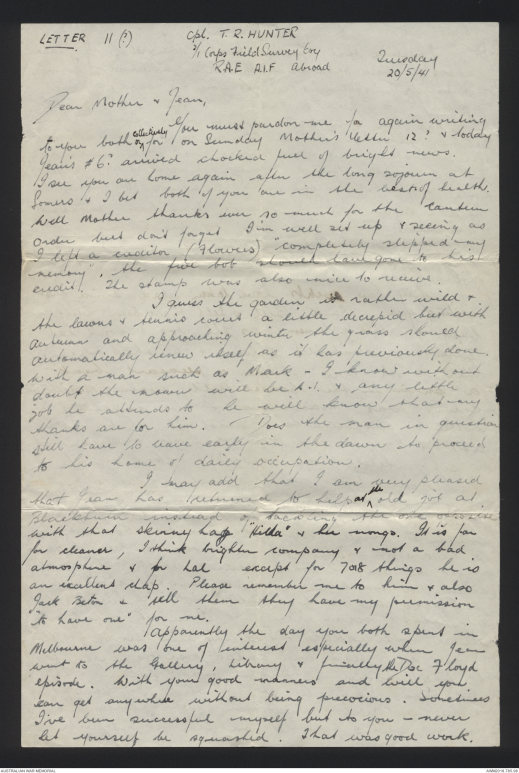 LETTER 11(?)
Cpl. T. R. HUNTER
2/1 Corps Field Survey Coy
R.A.E A.I.F Abroad
Tuesday
20/5/41
Dear Mother & Jean,
You must pardon me for again writing
to you both collectively for on Sunday Mother's letter 12? & today
Jean's #6? arrived chocked full of bright news.
I see you are home again after the long sojourn at
Somers & I bet both of you are in the best of health.
Well Mother thanks ever so much for the Canteen
Order but don't forget I'm well set up & seeing as
I left a creditor (Flowers) "completely slipped my
memory", the five bob should have gone to his
credit. The stamp was also nice to receive.
I guess the garden is rather wild &
the lawns & tennis court a little decrepid but with
Autumn and approaching winter the grass should
automatically renew itself as it has previously done.
With a man such as Mark - I know without
doubt the mower will be A.1. & any little
job he attends to he will know that my
thanks are for him. Does the man in question
still have to leave early in the dawn to proceed
to his home & daily occupation.
I may add that I am very pleased
that Jean has returned to help at the old job at
Blackburn instead of tackling the one
with that skinny hag "Hilda" & her nongs. It is far
far cleaner, I think brighter company & not a bad
atmosphere & for Hal except for 7018 things he is
an excellent chap. Please remember me to him & also
Jack Beton & tell them they have my permission
"to have one" for me.
Apparently the day you both spent in
Melbourne was one of interest especially when Jean
went to the Gallery, Library & finally the Doc Floyd
episode. With your good manners and will you
can get anywhere without being precocious. Sometimes
I've been successful myself but to you - never
let yourself be squashed. That was good work.
AUSTRALIAN WAR MEMORIAL